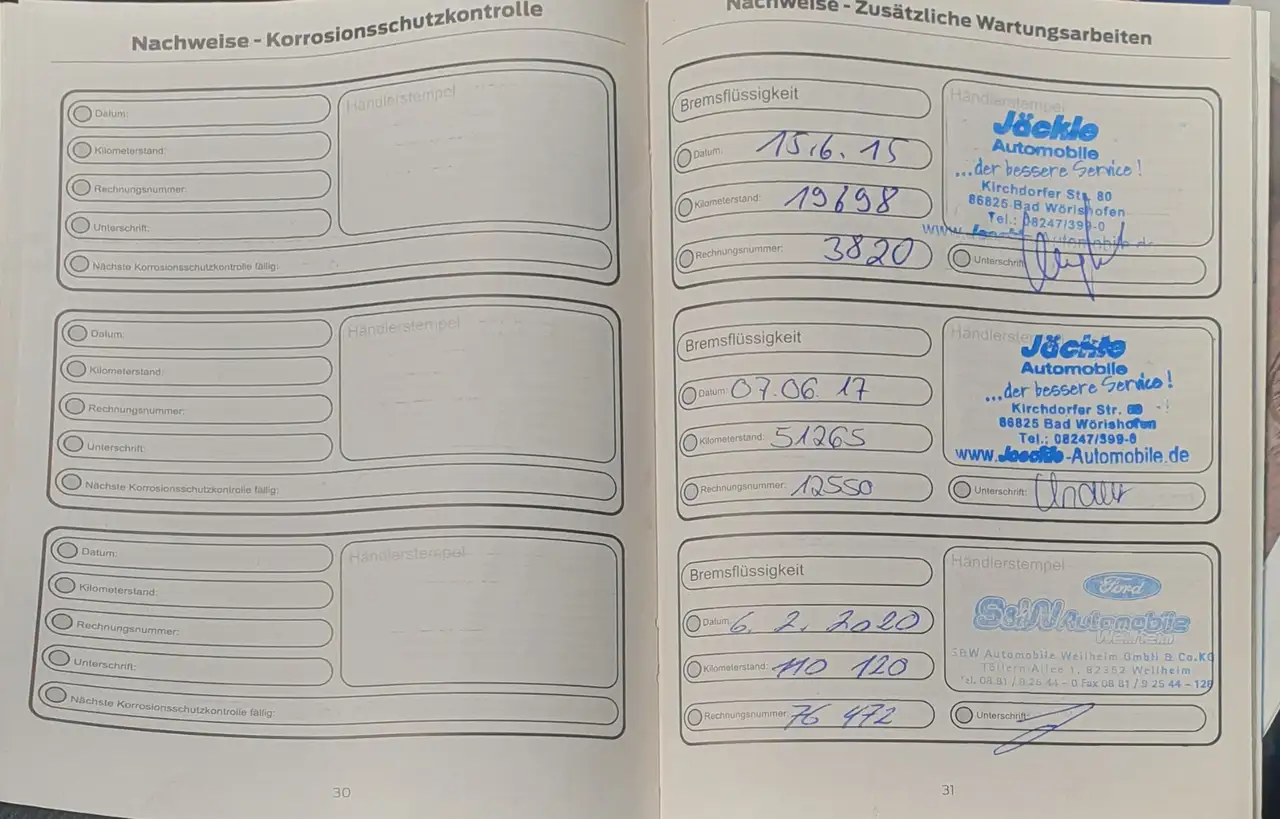 Nachweise - Korrosionsschutzkontrolle
Datum:
Händlerstempel
Kilometerstand:
Rechnungsnummer:
Unterschrift:
Nächste Korrosionsschutzkontrolle fällig:
Datum:
Händlerstempel
Kilometerstand:
Rechnungsnummer:
Unterschrift:
Nächste Korrosionsschutzkontrolle fällig:
Datum:
Händlerstempel
Kilometerstand:
Rechnungsnummer:
Unterschrift:
Nächste Korrosionsschutzkontrolle fällig:
30
Nachweise - Zusätzliche Wartungsarbeiten
Bremsflüssigkeit
Datum: 15.6.15
Kilometerstand: 19698
Rechnungsnummer: 3820
Händlerstempel
Jäckle
Automobile
...der bessere Service!
Kirchdorfer Str. 80
86825 Bad Wörishofen
Tel.: 08247/399-0
www.Jaeckle-Automobile.de
Unterschrift:
Bremsflüssigkeit
Datum: 07.06.17
Kilometerstand: 51265
Rechnungsnummer: 12550
Händlerstempel
Jäckle
Automobile
...der bessere Service!
Kirchdorfer Str. 80
86825 Bad Wörishofen
Tel.: 08247/399-0
www.Jaeckle-Automobile.de
Unterschrift:
Bremsflüssigkeit
Datum: 6. 2. 2020
Kilometerstand: 110 120
Rechnungsnummer: 76 472
Händlerstempel
Ford
S&W Automobile
Weilheim
S&W Automobile Weilheim GmbH & Co.KG
82362 Weilheim
Tel. 08 81 / 9 25 44 - 0 Fax 08 81 / 9 25 44 - 128
Unterschrift:
31